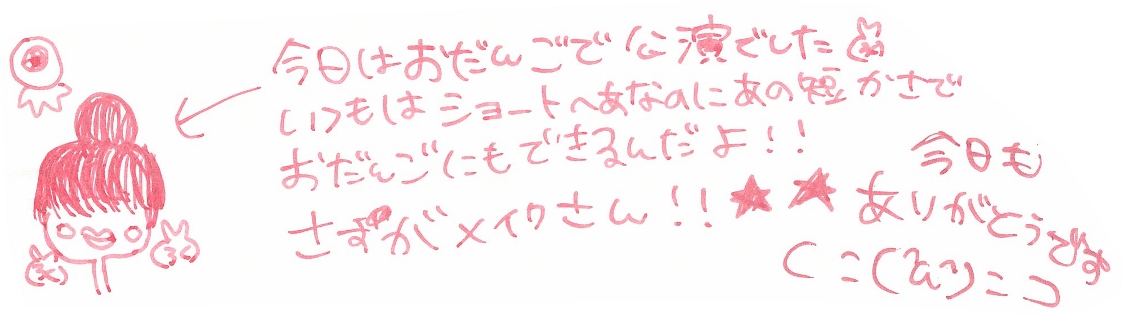 今日はおだんごで公演でした
いつもはショートヘあなのにあの短かさで
おだんごにもできるんだよ！！
さすがメイクさん！！★★
今日も
ありがとうです
⊂二(^ω^)二⊃